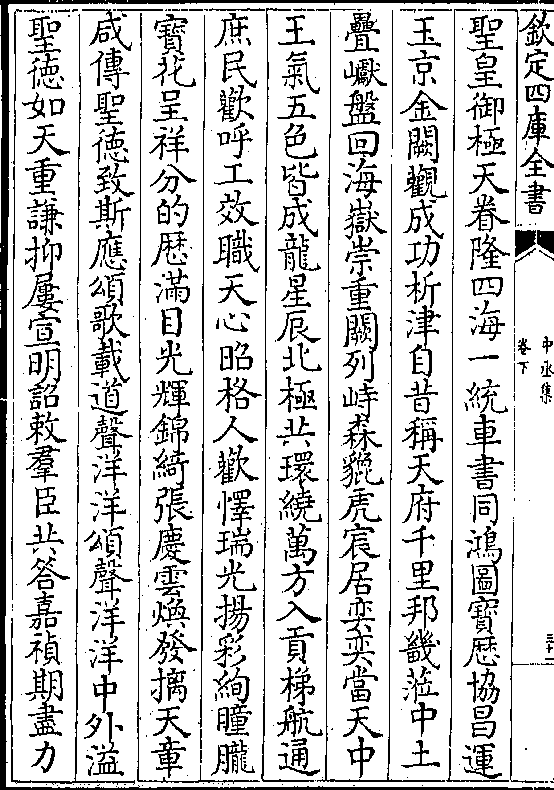 欽定四庫全書
中丞集
卷下
聖皇御極天眷隆四海一統車書同鴻圖寶歴協昌運
玉京金闕觀成功析津自昔稱天府千里邦畿蒞中土
疊巘盤回海嶽崇重闕列峙森貔虎宸居奕奕當天中
王氣五色皆成龍星辰北極共環繞萬方入貢梯航通
庶民歡呼工效職天心昭格人歡懌瑞光揚彩絢曈朧
寶花呈祥分的歴滿目光輝錦綺張慶雲煥發摛天章
咸傳聖徳致斯應頌歌載道聲洋洋頌聲洋洋中外溢
聖徳如天重謙抑屢宣明詔敕羣臣共答嘉禎期盡力